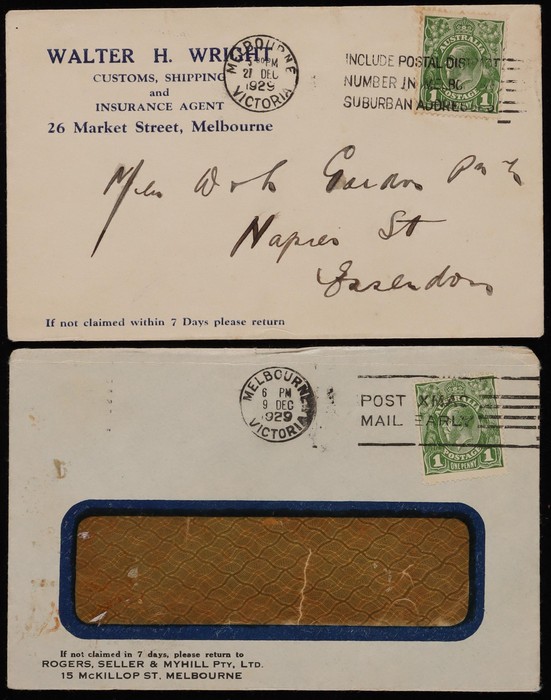 WALTER H. WRIGHT
CUSTOMS, SHIPPING
and
INSURANCE AGENT
26 Market Street, Melbourne
MELBOURNE
PM
21 DEC
1929
VICTORIA
INCLUDE POSTAL DISTRICT
NUMBER IN
SUBURBAN ADDRESS
AUSTRALIA
1 POSTAGE 1
Gordon
Napier St
Essendon
If not claimed within 7 Days please return
MELBOURNE
6 PM
9 DEC
1929
VICTORIA
POST XMAS
MAIL EARLY
AUSTRALIA
POSTAGE
1 ONE PENNY 1
If not claimed in 7 days, please return to
ROGERS, SELLER & MYHILL PTY, LTD.
15 McKILLOP ST, MELBOURNE